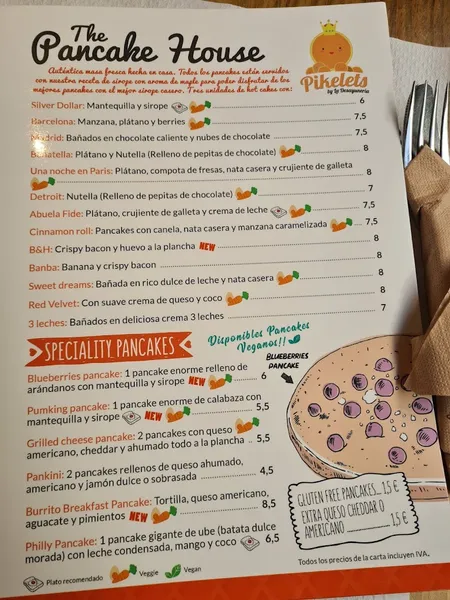 The
Pancake House
Auténtica masa fresca hecha en casa. Todos los pancakes están servidos
con nuestra receta de sirope con aroma de maple para poder disfrutar de los
mejores pancakes con el mejor sirope casero. Tres unidades de hot cakes con:
Pikelets
by La Desayunería
Silver Dollar: Mantequilla y sirope 6
Barcelona: Manzana, plátano y berries 7,5
Madrid: Bañados en chocolate caliente y nubes de chocolate 7,5
Banatella: Plátano y Nutella (Relleno de pepitas de chocolate) 8
Una noche en Paris: Plátano, compota de fresas, nata casera y crujiente de galleta
8
Detroit: Nutella (Relleno de pepitas de chocolate) 7
Abuela Fide: Plátano, crujiente de galleta y crema de leche 7,5
Cinnamon roll: Pancakes con canela, nata casera y manzana caramelizada 7,5
B&H: Crispy bacon y huevo a la plancha NEW 8
Banba: Banana y crispy bacon 8
Sweet dreams: Bañada en rico dulce de leche y nata casera 8
Red Velvet: Con suave crema de queso y coco 8
3 leches: Bañados en deliciosa crema 3 leches 7
SPECIALITY PANCAKES
Disponibles Pancakes
Veganos!!
BLUEBERRIES
PANCAKE
Blueberries pancake: 1 pancake enorme relleno de
arándanos con mantequilla y sirope NEW 6
Pumking pancake: 1 pancake enorme de calabaza con
mantequilla y sirope NEW 5,5
Grilled cheese pancake: 2 pancakes con queso
americano, cheddar y ahumado todo a la plancha 5,5
Pankini: 2 pancakes rellenos de queso ahumado,
americano y jamón dulce o sobrasada 4,5
Burrito Breakfast Pancake: Tortilla, queso americano,
aguacate y pimientos NEW 8,5
Philly Pancake: 1 pancake gigante de ube (batata dulce
morada) con leche condensada, mango y coco 6,5
GLUTEN FREE PANCAKES... 1.5 €
EXTRA QUESO CHEDDAR O
AMERICANO 1.5 €
Todos los precios de la carta incluyen IVA.
Plato recomendado Veggie Vegan